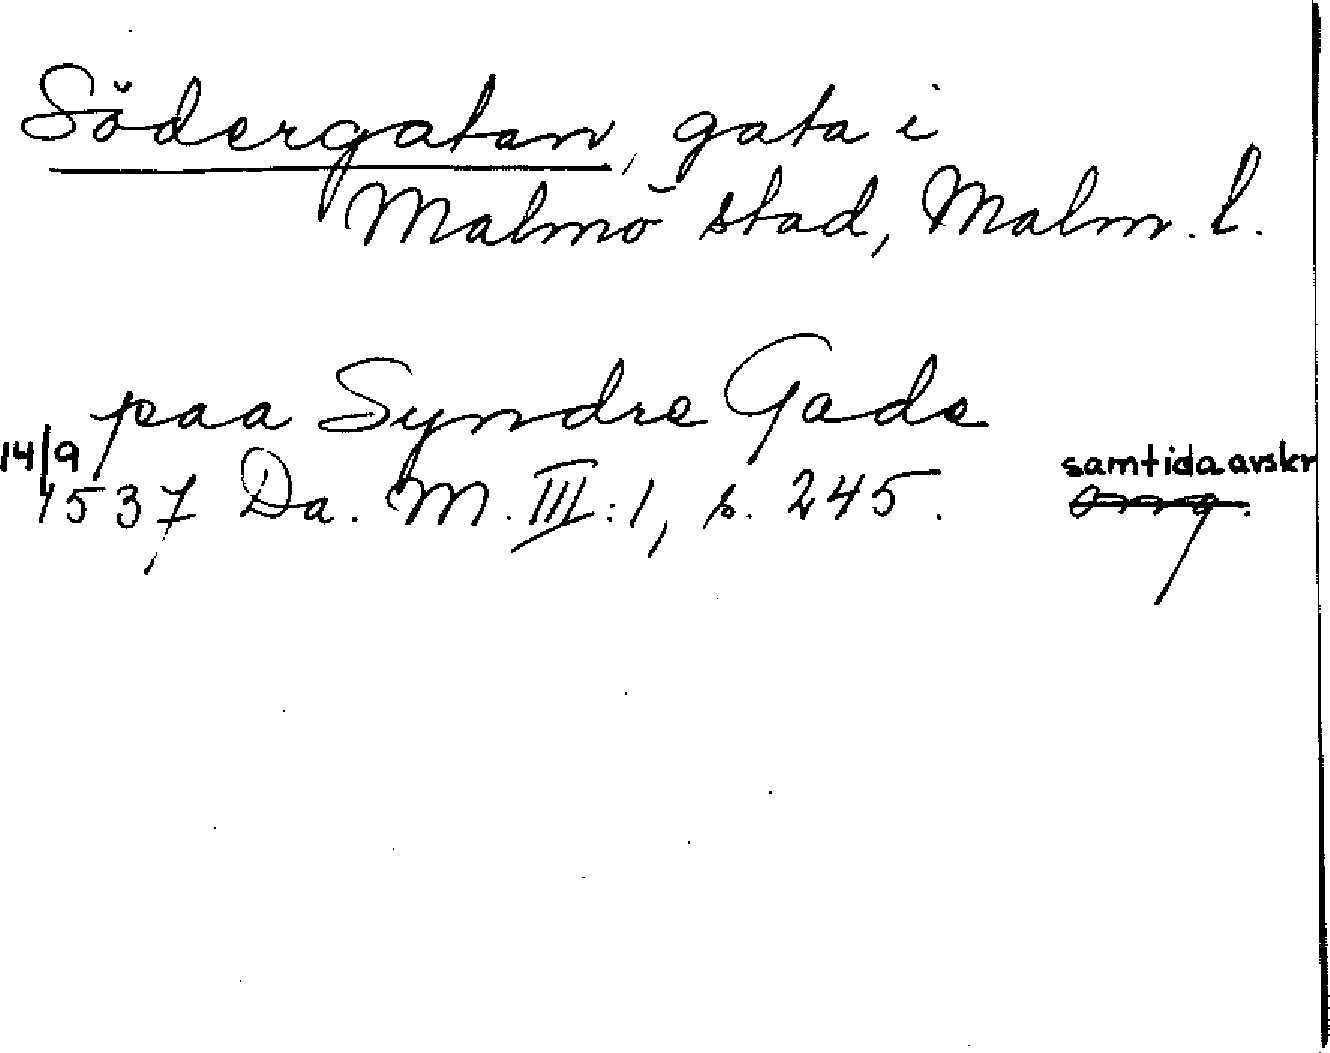 Södergatan, gata i
Malmö stad, Malm. l.
paa Syndre Gade
14/9 samtida avskr
1537 Da. M. III:1, s. 245.